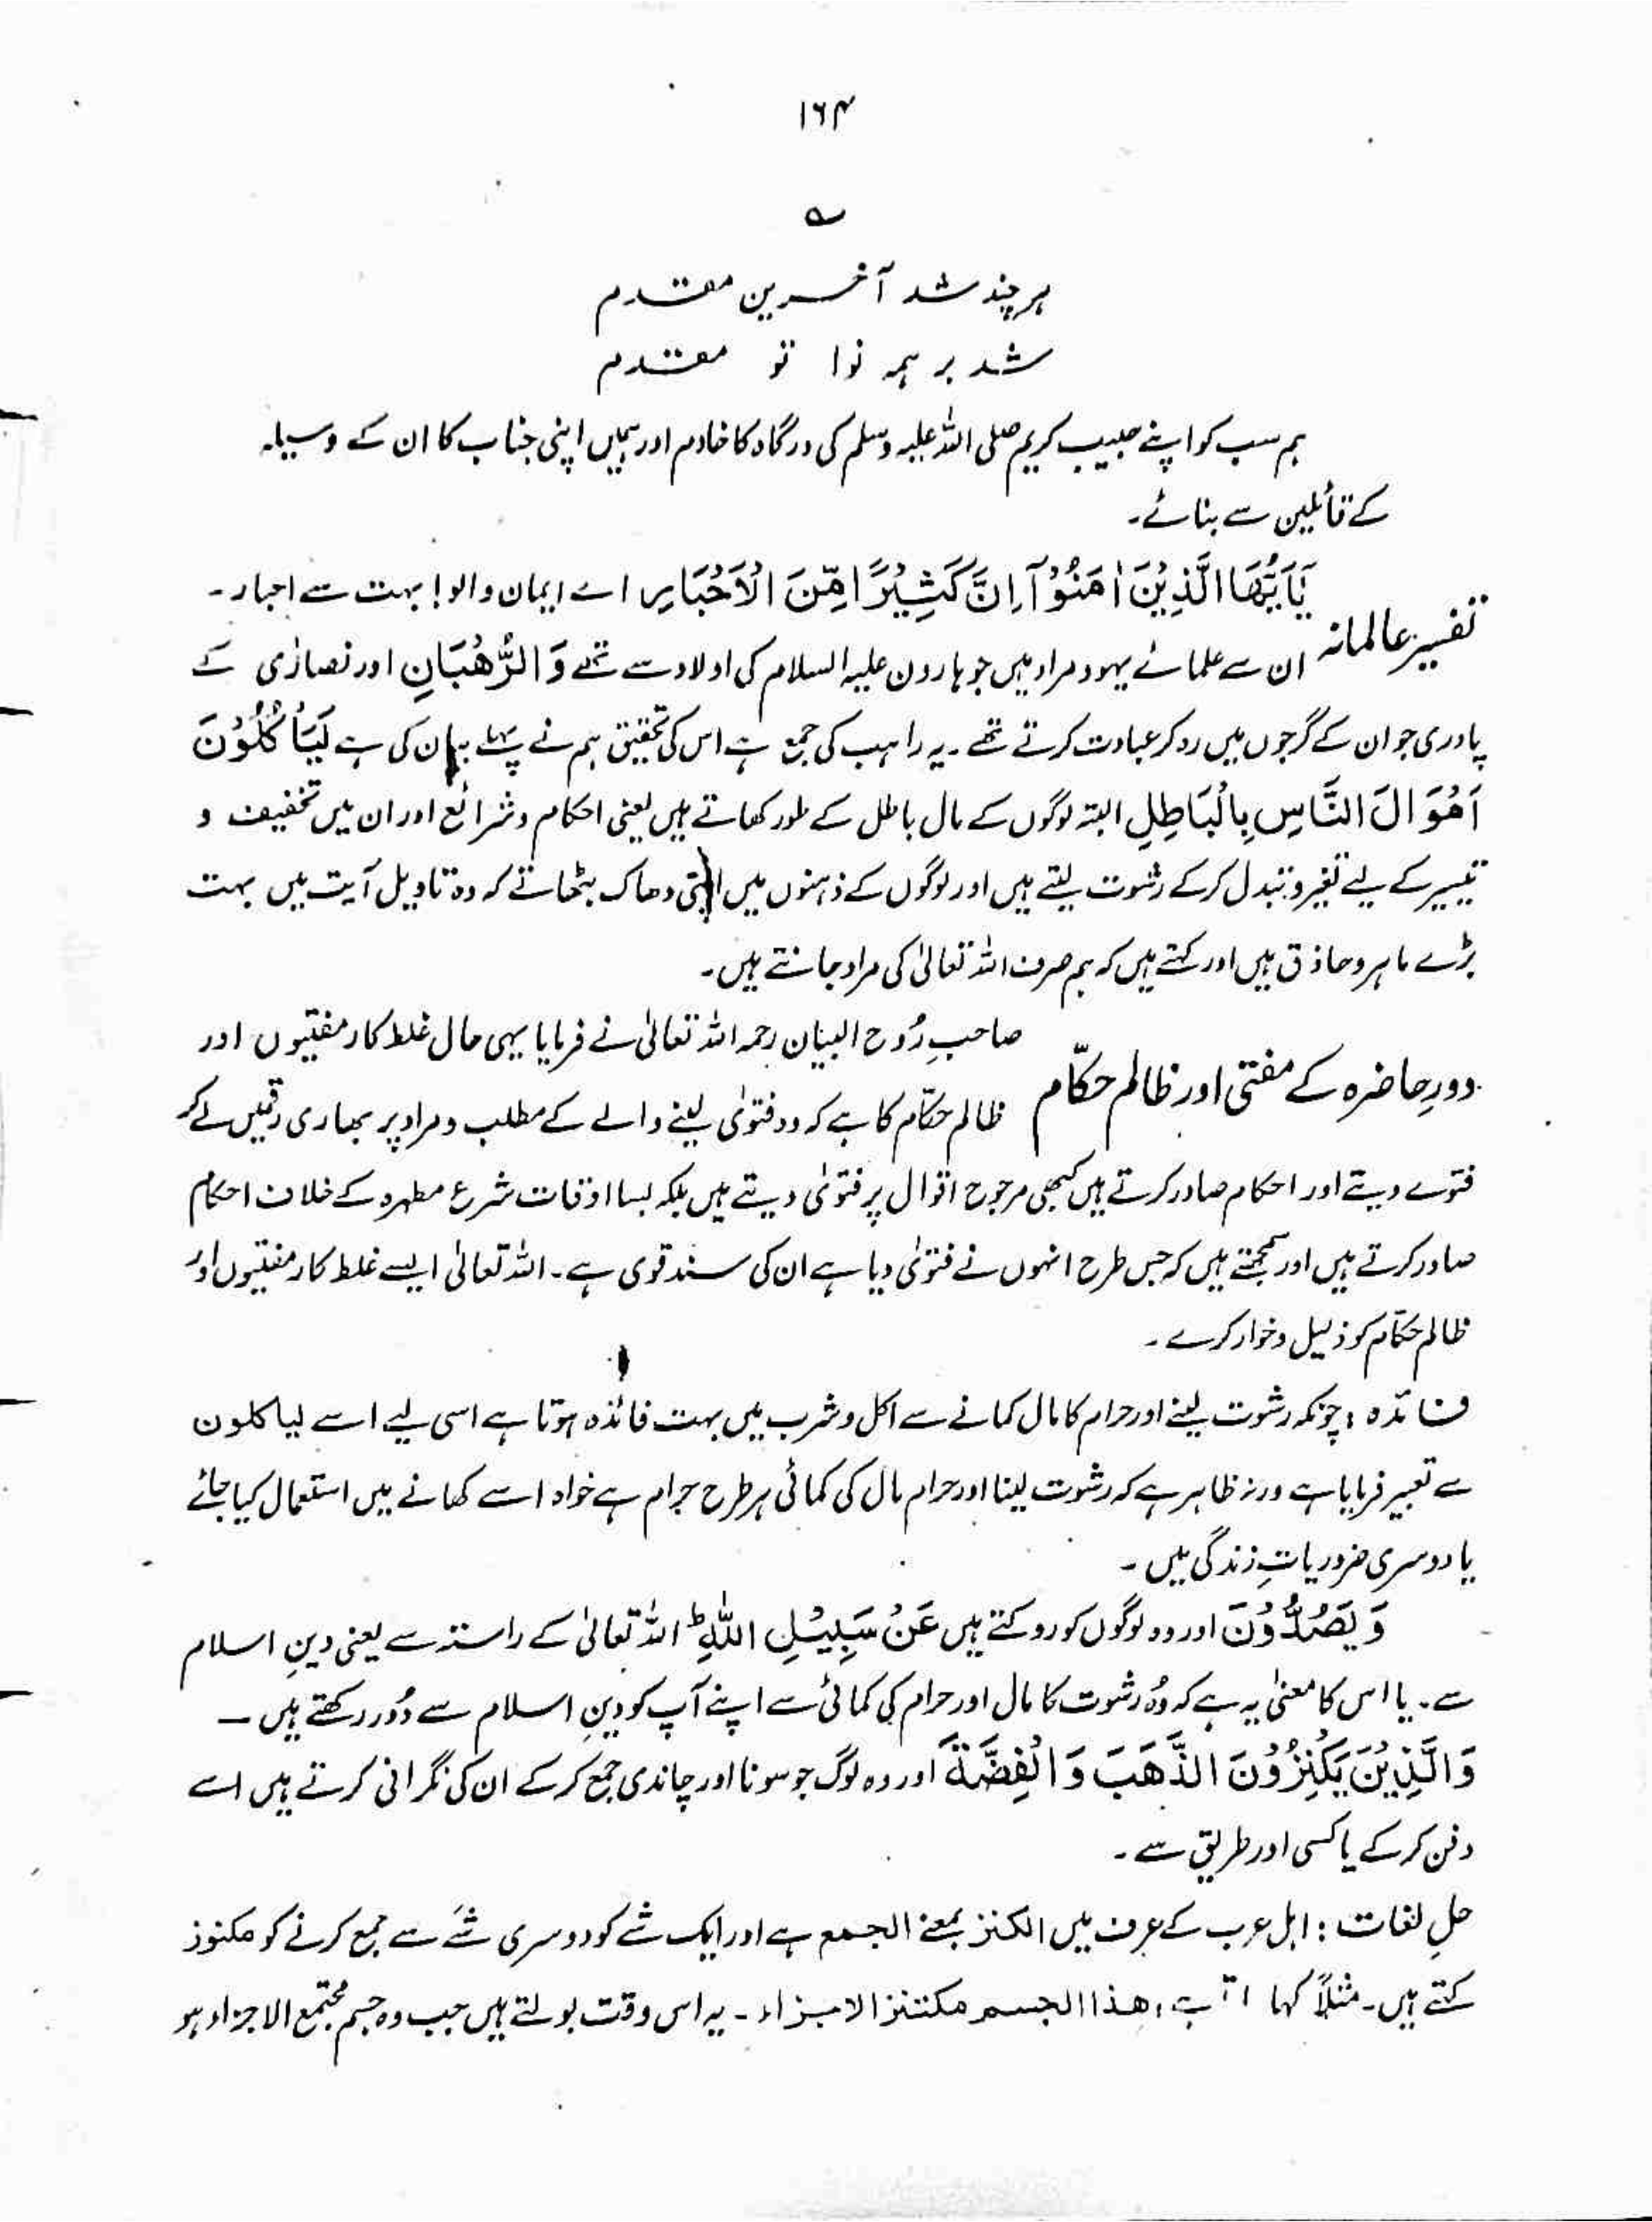 ۱۶۴
ہ
ہر چند شد آخرین مقدم
شد بر ہمہ نوا تو مقدم
ہم سب کو اپنے حبیب کریم صلی اللہ علیہ وسلم کی درگاہ کا خادم اور ہمیں اپنی جناب کا ان کے وسیلہ
کے قائلین سے بنائے۔
تفسیر عالمانہ
یٰۤاَیُّهَا الَّذِیْنَ اٰمَنُوْۤا اِنَّ كَثِیْرًا مِّنَ الْاَحْبَارِ اے ایمان والو! بہت سے احبار۔
ان سے علمائے یہود مراد ہیں جو ہارون علیہ السلام کی اولاد سے تھے وَ الرُّهْبَانِ اور نصارٰی کے
پادری جو ان کے گرجوں میں رہ کر عبادت کرتے تھے۔ یہ راہب کی جمع ہے اس کی تحقیق ہم نے پہلے بیان کی ہے لَیَاْكُلُوْنَ
اَمْوَالَ النَّاسِ بِالْبَاطِلِ البتہ لوگوں کے مال باطل کے طور کھاتے ہیں یعنی احکام و شرائع اور ان میں تخفیف و
تیسیر کے لیے تغیر و تبدل کرکے رشوت لیتے ہیں اور لوگوں کے ذہنوں میں اپنی دھاک بٹھاتے کہ وہ تاویل آیت میں بہت
بڑے ماہر و حاذق ہیں اور کہتے ہیں کہ ہم صرف اللہ تعالیٰ کی مراد جانتے ہیں۔
دورِ حاضرہ کے مفتی اور ظالم حکّام
صاحبِ رُوح البیان رحمہ اللہ تعالیٰ نے فرمایا یہی حال غلط کار مفتیوں اور
ظالم حکّام کا ہے کہ وہ فتوٰی لینے والے کے مطلب و مراد پر بھاری رقمیں لے کر
فتوے دیتے اور احکام صادر کرتے ہیں کبھی مرجوح اقوال پر فتوٰی دیتے ہیں بلکہ بسا اوقات شرع مطہرہ کے خلاف احکام
صادر کرتے ہیں اور سمجھتے ہیں کہ جس طرح انہوں نے فتوٰی دیا ہے ان کی سند قوی ہے۔ اللہ تعالیٰ ایسے غلط کار مفتیوں اور
ظالم حکّام کو ذلیل و خوار کرے۔
فائدہ : چونکہ رشوت لینے اور حرام کا مال کمانے سے اکل و شرب میں بہت فائدہ ہوتا ہے اسی لیے اسے لیاکلون
سے تعبیر فرمایا ہے ورنہ ظاہر ہے کہ رشوت لینا اور حرام مال کی کمائی ہر طرح حرام ہے خواہ اسے کھانے میں استعمال کیا جائے
یا دوسری ضروریاتِ زندگی میں۔
وَ یَصُدُّوْنَ اور وہ لوگوں کو روکتے ہیں عَنْ سَبِیْلِ اللّٰهِ ؕ اللہ تعالیٰ کے راستہ سے یعنی دینِ اسلام
سے۔ یا اس کا معنیٰ یہ ہے کہ وُہ رشوت کا مال اور حرام کی کمائی سے اپنے آپ کو دینِ اسلام سے دُور رکھتے ہیں —
وَ الَّذِیْنَ یَكْنِزُوْنَ الذَّهَبَ وَ الْفِضَّةَ اور وہ لوگ جو سونا اور چاندی جمع کرکے ان کی نگرانی کرتے ہیں اسے
دفن کرکے یا کسی اور طریق سے۔
حلِ لغات : اہل عرب کے عرف میں الکنز بمعنے الجمع ہے اور ایک شے کو دوسری شے سے جمع کرنے کو مکنوز
کہتے ہیں۔ مثلاً کہا : ھذا الجسم مکتنز الاجزاء۔ یہ اس وقت بولتے ہیں جب وہ جسم مجتمع الاجزاء ہو